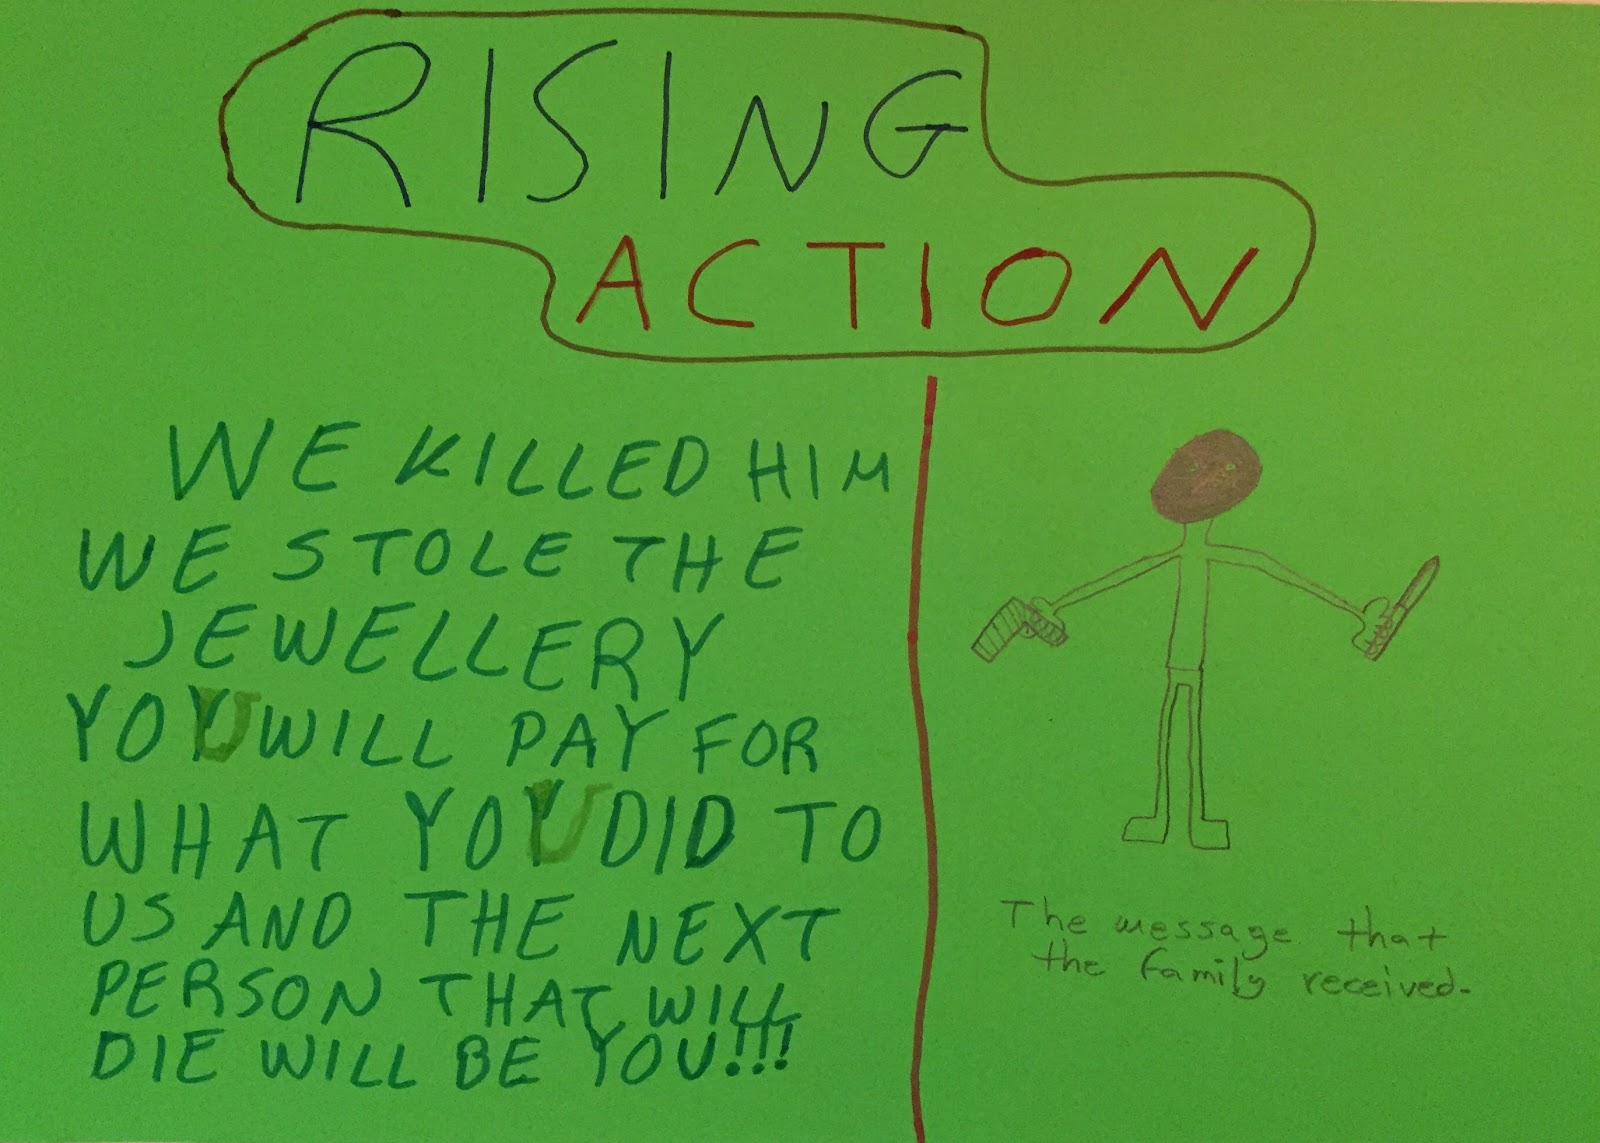 RISING
ACTION
WE KILLED HIM
WE STOLE THE
JEWELLERY
YOU WILL PAY FOR
WHAT YOU DID TO
US AND THE NEXT
PERSON THAT WILL
DIE WILL BE YOU!!!
The message that
the family received.